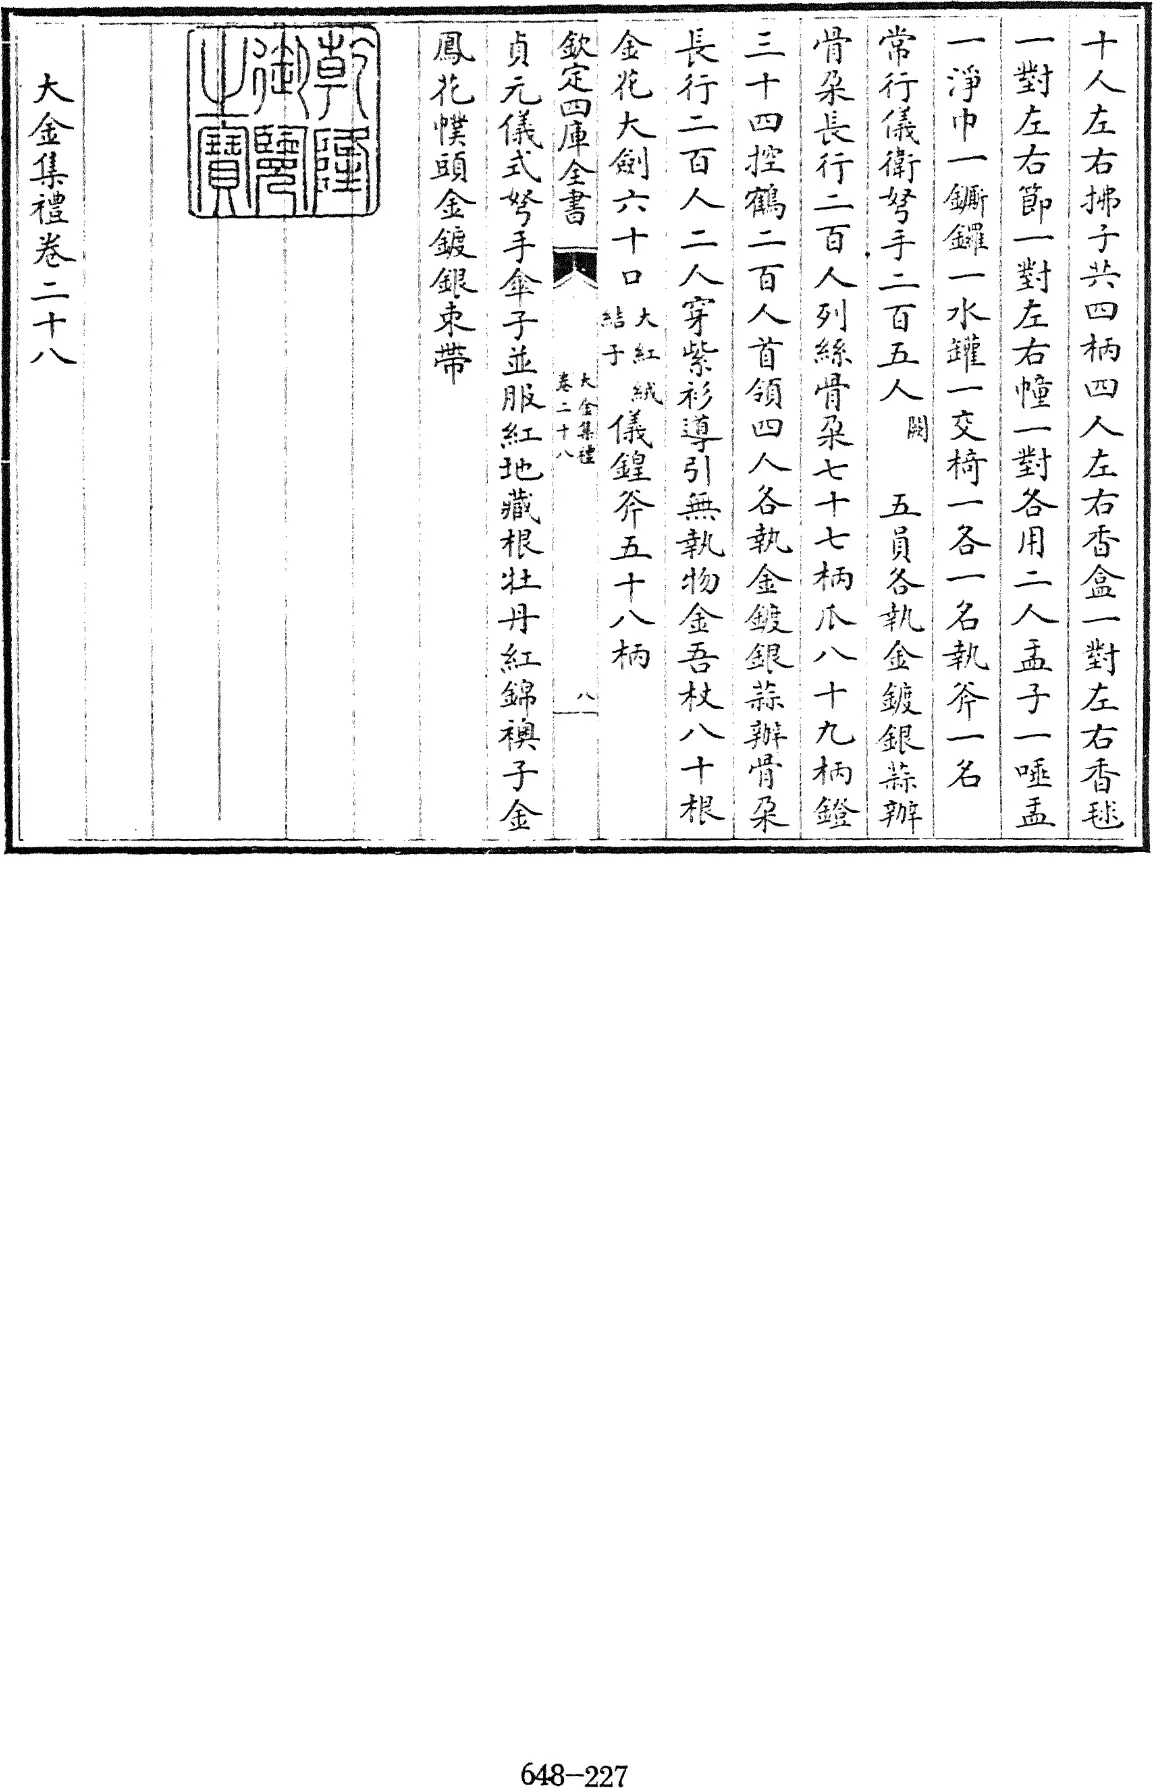 十人左右拂子共四柄四人左右香盒一對左右香毬
一對左右節一對左右幢一對各用二人盂子一唾盂
一淨巾一鐁鑼一水罐一交椅一各一名執斧一名
常行儀衛弩手二百五人闕五員各執金鍍銀蒜瓣
骨朶長行二百人列絲骨朶七十七柄瓜八十九柄鐙
三十四控鶴二百人首領四人各執金鍍銀蒜瓣骨朶
長行二百人二人穿紫衫導引無執物金吾杖八十根
金花大劍六十口大紅絨結子儀鍠斧五十八柄
欽定四庫全書
大金集禮
卷二十八
八
貞元儀式弩手傘子並服紅地藏根牡丹紅錦襖子金
鳳花幞頭金鍍銀束帶
乾隆御覽之寶
大金集禮卷二十八
648-227